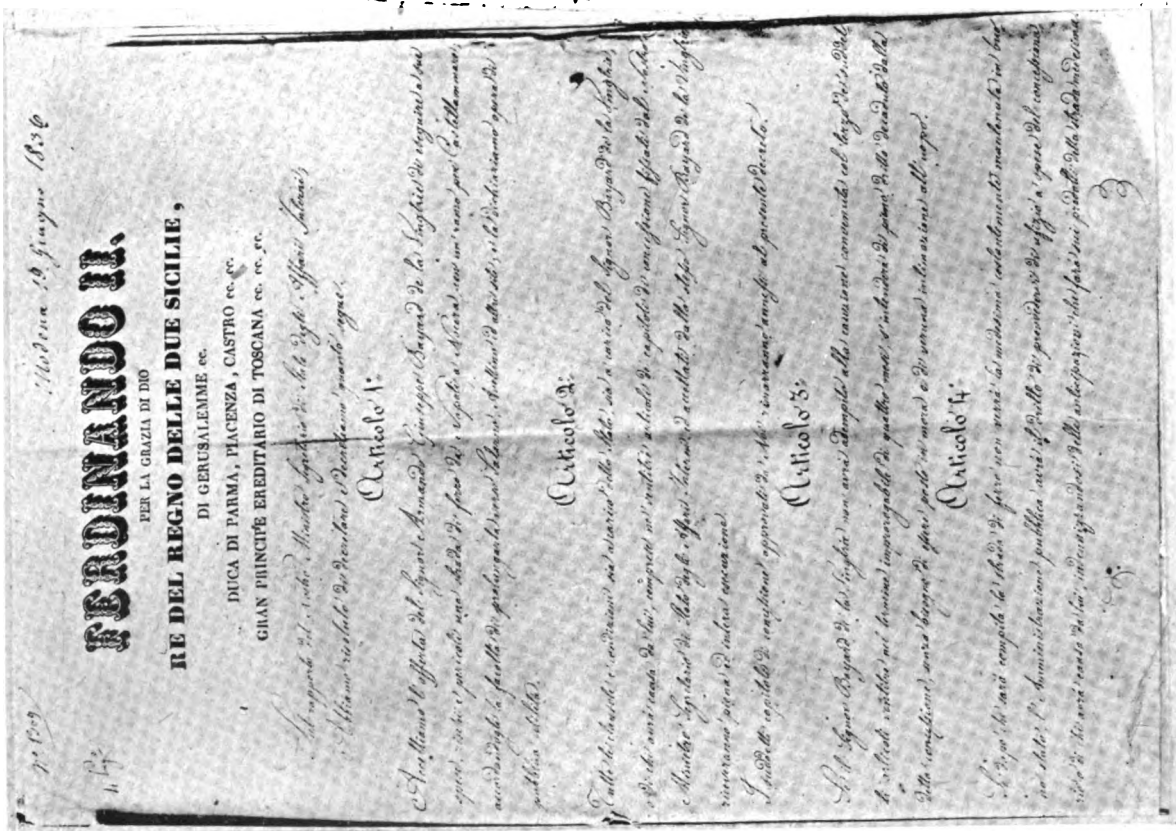 Modena 19 Giugno 1836
FERDINANDO II.
PER LA GRAZIA DI DIO
RE DEL REGNO DELLE DUE SICILIE,
DI GERUSALEMME ec.
DUCA DI PARMA, PIACENZA, CASTRO ec. ec.
GRAN PRINCIPE EREDITARIO DI TOSCANA ec. ec. ec.
rapporto del nostro Ministro Segretario di Stato degli Affari Interni;
Abbiamo risoluto di decretare e decretiamo quanto segue.
Articolo 1:
Accettiamo l'offerta del Signor Armando Giuseppe Bayard de la Vingtrie di eseguire a sue
spese, rischi e pericoli una strada di ferro da Napoli a Nocera con un ramo per Castellammare,
accordandogli la facoltà di prolungarla verso Salerno, Avellino ed altri siti, e la dichiariamo opera di
pubblica utilità.
Articolo 2:
Tutte le clausole e condizioni sia a carico dello Stato, sia a carico del Signor Bayard de la Vingtrie,
o di chi avrà causa da lui, comprese articoli di capitoli di concessione dal nostro
Ministro Segretario di Stato degli Affari Interni ed accettati dallo stesso Signor Bayard de la Vingtrie
riceveranno piena ed intera esecuzione.
I suddetti capitoli di concessione approvati da Noi rimarranno annessi al presente decreto.
Articolo 3:
Se il Signor Bayard de la Vingtrie non avrà adempito alla cauzione convenuta col terzo de' suddetti
articoli nel termine improrogabile di quattro mesi, s'intenderà di pieno dritto decaduto dalla
concessione, senza bisogno di essere posto in mora e di veruna intimazione all'uopo.
Articolo 4:
Se dopo che sarà compita la strada di ferro non verrà la medesima costantemente mantenuta in buono
stato, l'Amministrazione pubblica avrà il dritto di provvedervi di uffizio a spese del concessionario
o di chi avrà causa da lui, indennizzandosi delle anticipazioni che farà sui prodotti della strada medesima.
3